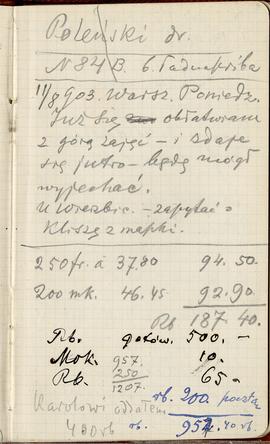 Poleński dr.
N 84 B.
11/8 903. Warsz. Poniedz.
Już się obłatwiam
z górą zajęć – i zdaje
się jutro – będę mógł
wyjechać.
U Wierzbic. – zapytać o
kliszę z mapki.
250 fr. á 37.80 94.50.
200 mk. 46.45 92.90
Rb 187.40
Rb. gotów. 500,–
Mok. 957. 10.
Rb. 250 65
1207.
rb. 200 poczta
Karolowi oddałem
400 rb rb. 952.40 rb.